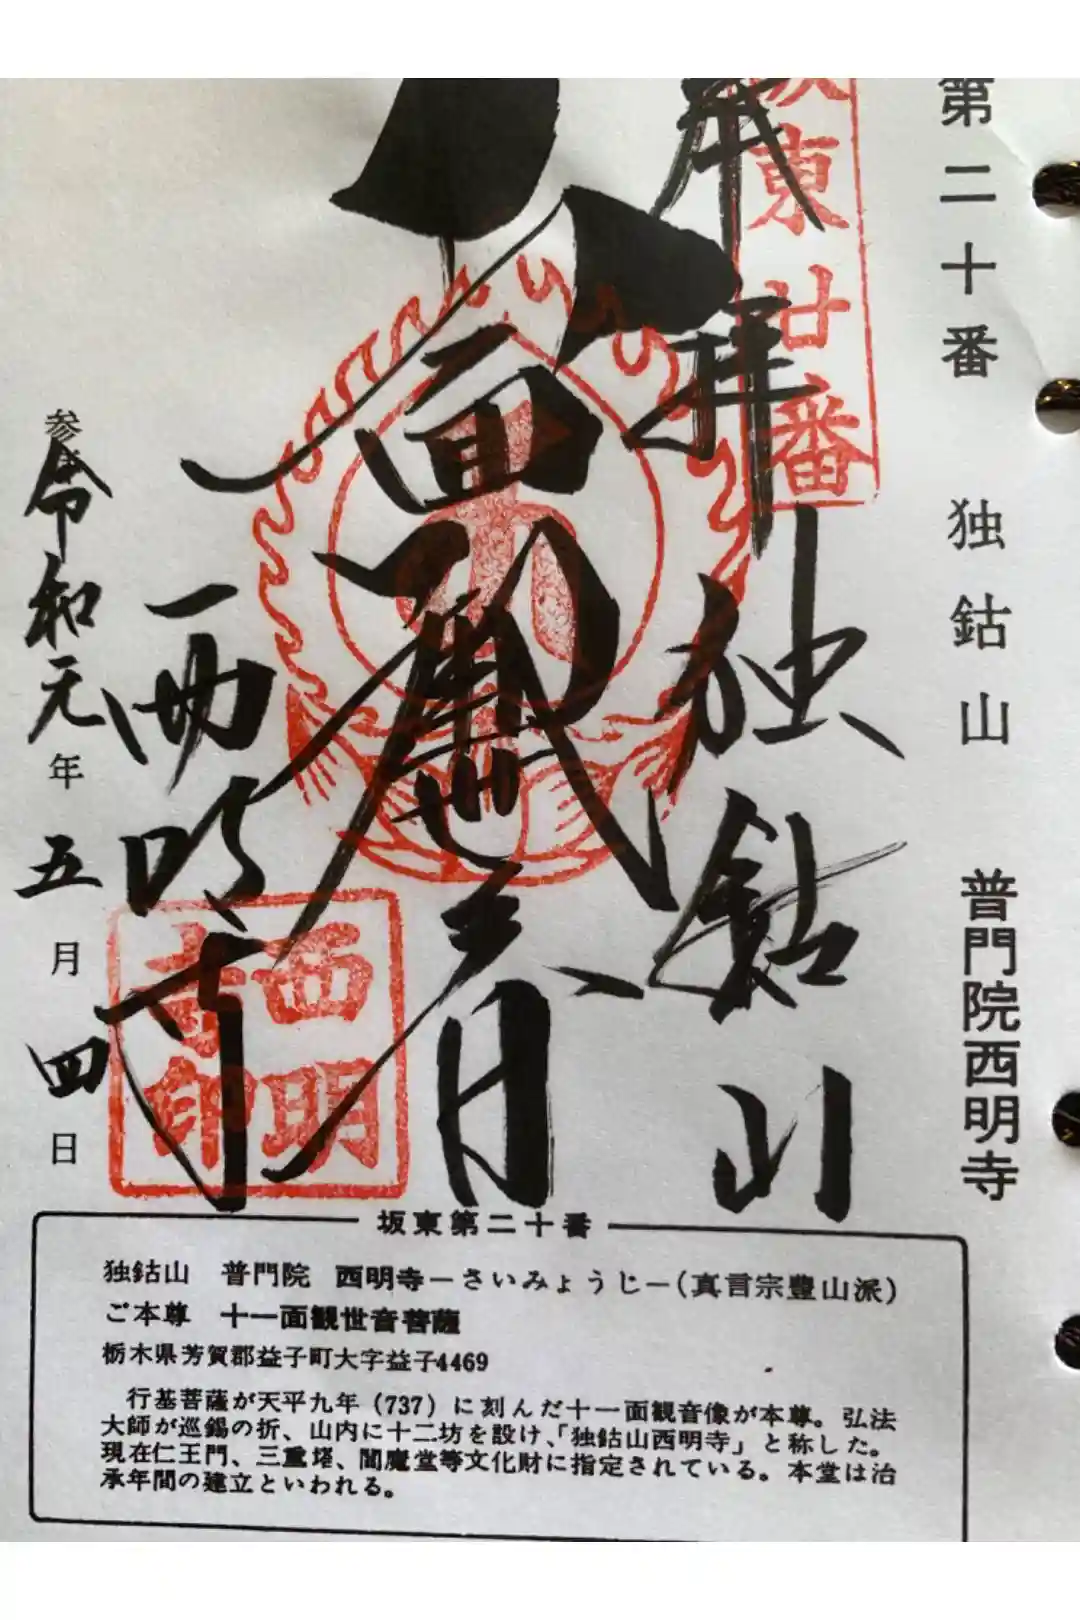 第二十番 独鈷山 普門院西明寺
坂東廿番
奉拝 独鈷山
十一面観世音
西明寺
西明
寺印
参
令和元年五月四日
坂東第二十番
独鈷山 普門院 西明寺－さいみょうじ－(真言宗豊山派)
ご本尊 十一面観世音菩薩
栃木県芳賀郡益子町大字益子4469
行基菩薩が天平九年（737）に刻んだ十一面観音像が本尊。弘法
大師が巡錫の折、山内に十二坊を設け、「独鈷山西明寺」と称した。
現在仁王門、三重塔、閻魔堂等文化財に指定されている。本堂は治
承年間の建立といわれる。